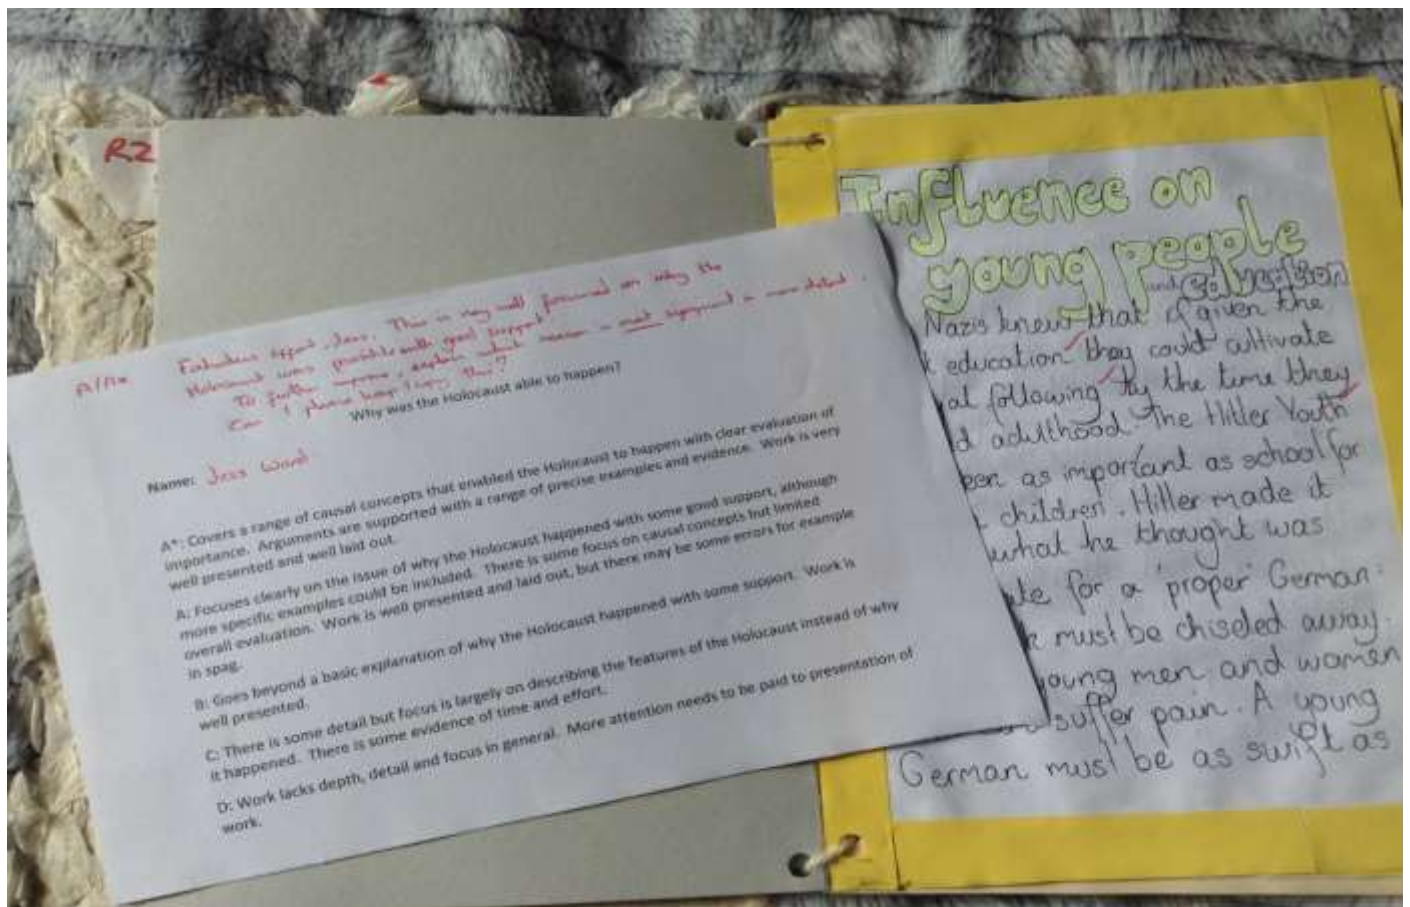 R2
A/A*
Fabulous effort, Jess. This is very well focused on why the
Holocaust was possible with good support.
To further improve, explain what reason is most significant in more detail.
Can I please keep / copy this?
Why was the Holocaust able to happen?
Name: Jess Ward
A*: Covers a range of causal concepts that enabled the Holocaust to happen with clear evaluation of
importance. Arguments are supported with a range of precise examples and evidence. Work is very
well presented and well laid out.
A: Focuses clearly on the issue of why the Holocaust happened with some good support, although
more specific examples could be included. There is some focus on causal concepts but limited
overall evaluation. Work is well presented and laid out, but there may be some errors for example
in spag.
B: Goes beyond a basic explanation of why the Holocaust happened with some support. Work is
well presented.
C: There is some detail but focus is largely on describing the features of the Holocaust instead of why
it happened. There is some evidence of time and effort.
D: Work lacks depth, detail and focus in general. More attention needs to be paid to presentation of
work.
Influence on
young people
and education
Nazis knew that if given the
education they could cultivate
following by the time they
adulthood. The Hitler Youth
as important as school for
children. Hitler made it
what he thought was
for a 'proper' German:
must be chiseled away.
young men and women
suffer pain. A young
German must be as swift as